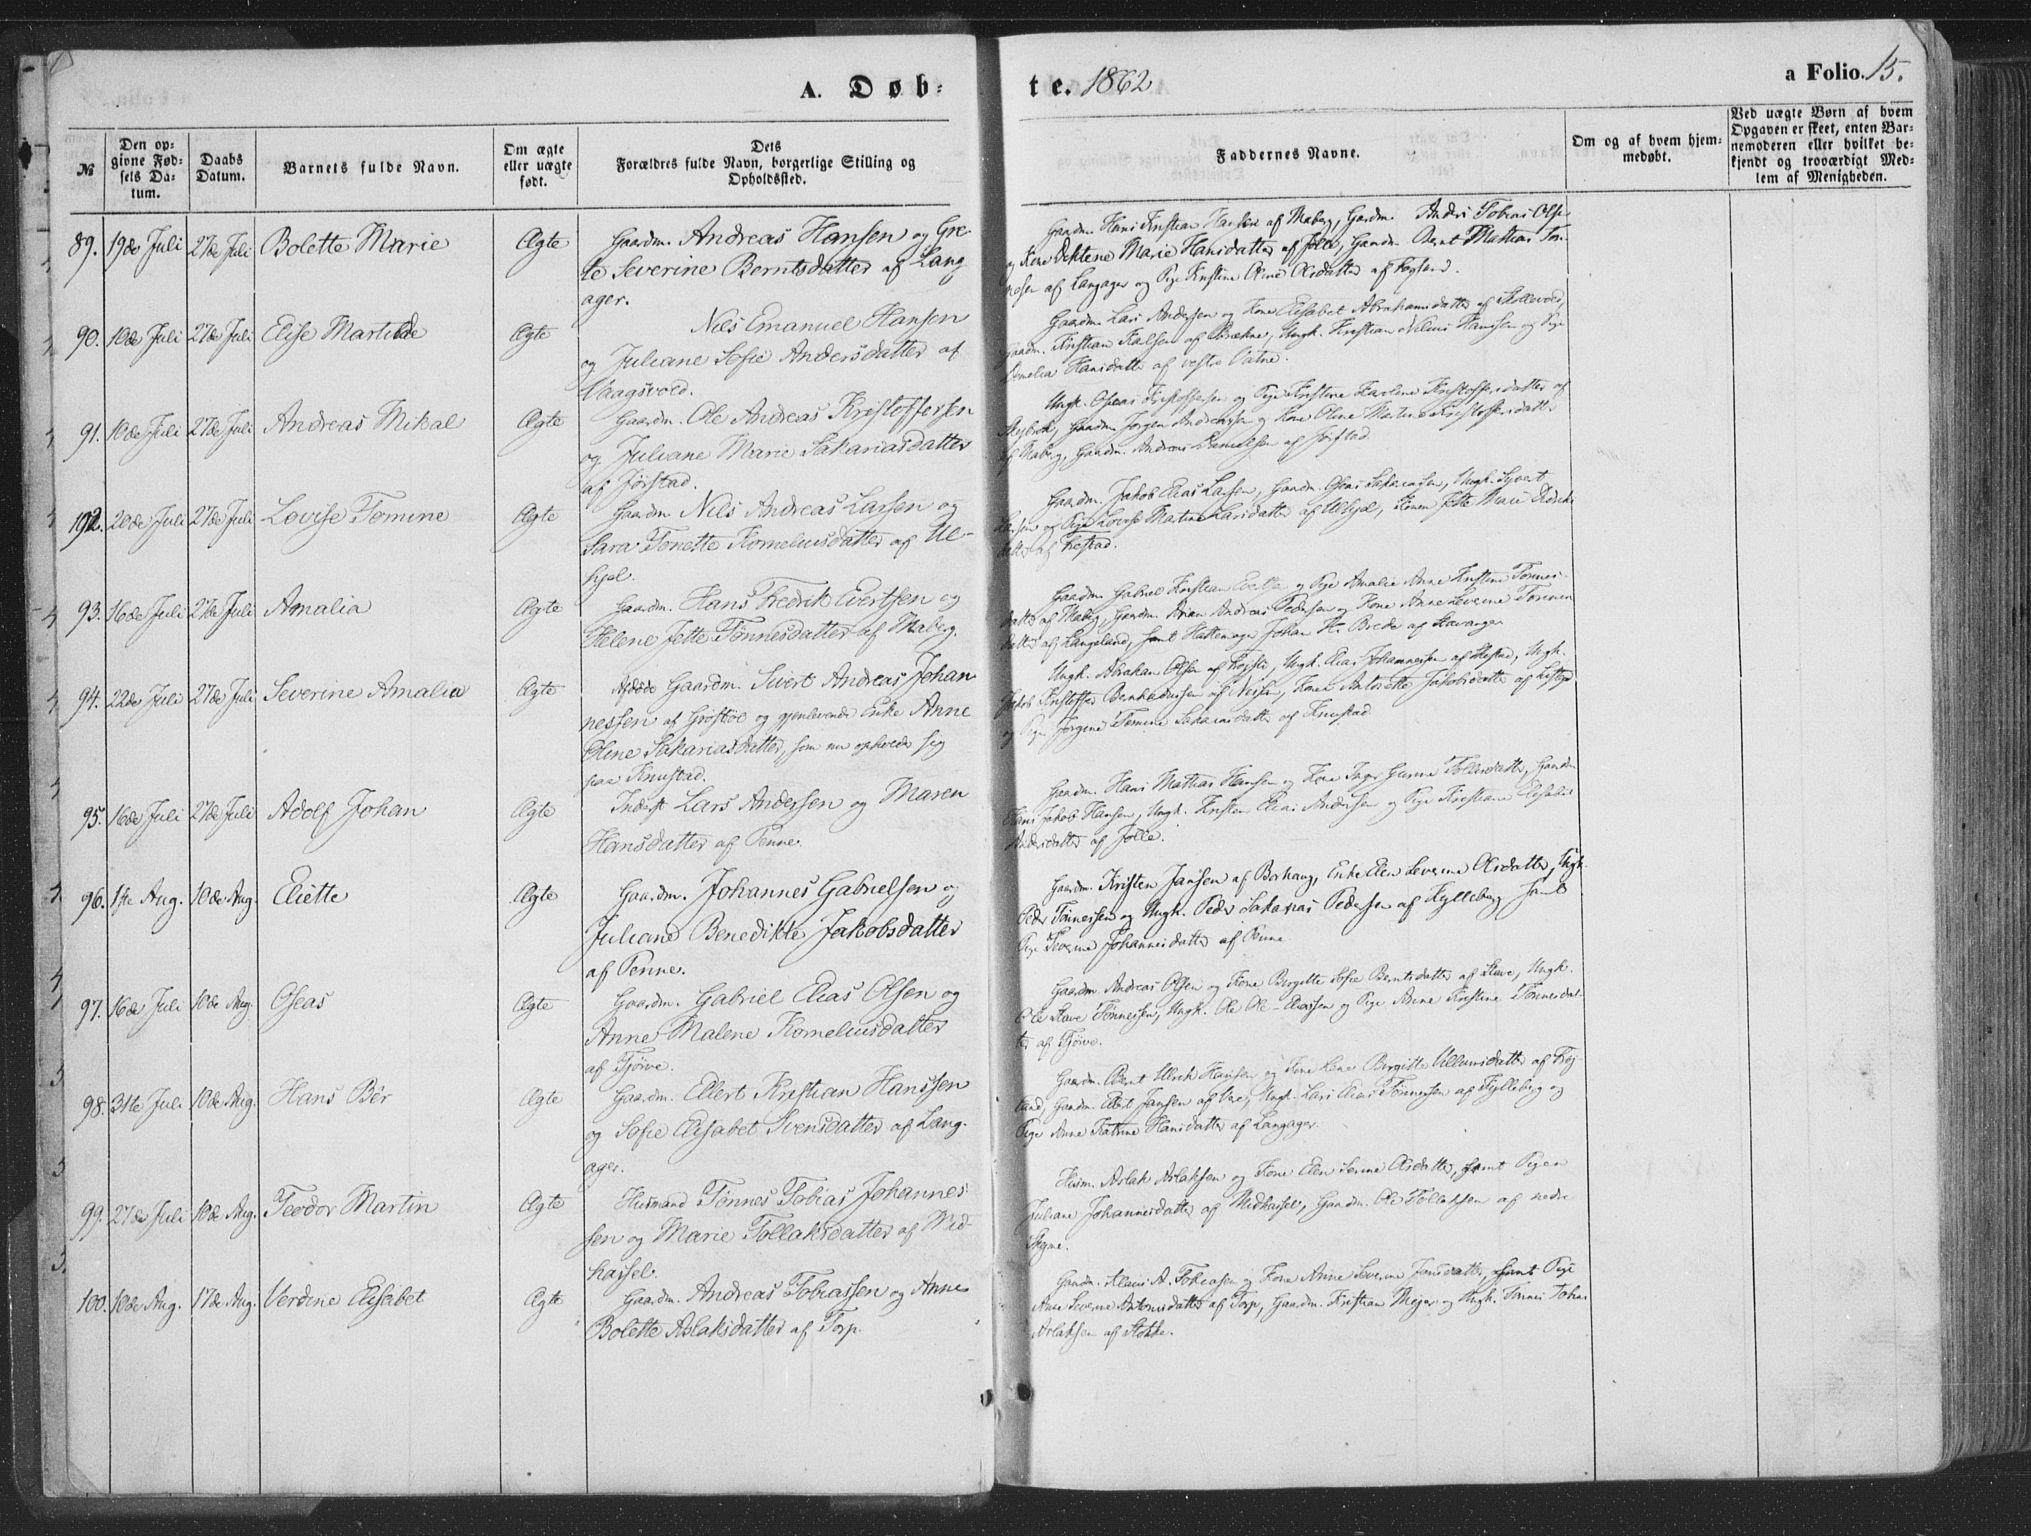 A. Døb-
te. 1862
a Folio. 15.
№
Den op-
givne Fød-
sels Da-
tum.
Daabs
Datum.
Barnets fulde Navn.
Om ægte
eller uægte
født.
Dets
Forældres fulde Navn, borgerlige Stilling og
Opholdssted.
Faddernes Navne.
Om og af hvem hjem-
medøbt.
Ved uægte Børn af hvem
Opgaven er skeet, enten Bar-
nemoderen eller hvilket be-
kjendt og troværdigt Med-
lem af Menigheden.
89. 19de Juli 27de Juli Bolette Marie Ægte Gaardm. Andreas Hansen og Gre-
te Severine Berntsdatter af Lang
ager.
Gaardm. Hans Kristian Hansen af Maberg, Gaardm. Anders Tobias Olse
og Kone Marie Hansdatter af Jolle, Gaardm. Bernt Mathias Tøn-
nesen af Langager og Pige Kristine Olsdatter af
90. 10de Juli 27de Juli Elise Martilde Ægte Nils Emanuel Hansen
og Juliane Sofie Andersdatter af
Vaagsvold.
Gaardm. Lars Andersen og Kone Elisabet Abrahamsdatter af Skollevold,
Gaardm. Kristian Kalsen af Brækne, Ungk. Kristian Nilaus Hansen og Pige
Hansdatter af vestre Vatne.
91. 10de Juli 27de Juli Andreas Mikal Ægte Gaardm. Ole Andreas Kristoffersen
og Juliane Marie Sakariasdatter
af Jørstad.
Ungk. Oseas Kristoffersen og Pige Kristine Karlene Kristoffersdatter af
Gaardm. Jørgen Andreassen og Kone Oline Martine Kristoffersdatter
af Maberg, Gaardm. Andreas Danielsen af Jørstad.
192. 20de Juli 27de Juli Lovise Tomine Ægte Gaardm. Nils Andreas Larsen og
Sara Tonette Korneliusdatter af Ul-
hjel.
Gaardm. Jakob Elias Larsen, Gaardm. Oseas Sakariasen, Ungk. Syvert
Larsen og Pige Lovise Martine Larsdatter af Ulhjel, Konen Jette Marie
datter af
93. 16de Juli 27de Juli Amalia Ægte Gaardm. Hans Fredrik Evertsen og
Helene Jette Tønnesdatter af Maberg.
Gaardm. Gabriel Kristian og Pige Amalie Anne Kristine Tønnes-
datter af Maberg, Gaardm. Brian Andreas Pedersen og Kone Anne Severine
datter af Langeland, samt Hattemager Johan H. Brede af Stavanger
94. 22de Juli 27de Juli Severine Amalia Ægte Afdøde Gaardm. Sivert Andreas Johan
nessen af Grøstøl og gjenlevende Enke Anne
Oline Sakariasdatter, som nu opholder sig
paa Knustad.
Ungk. Abraham Olsen af Ungk. Elias Johannessen af Ungk.
Jakob Kristoffer Bernhardussen af Kone Antonette Jakobsdatter af
og Pige Jørgine Tomine Sakariasdatter af Knustad.
95. 16de Juli 27de Juli Adolf Johan Ægte Inderst Lars Andersen og Maren
Hansdatter af Penne.
Gaardm. Hans Mathias Hansen og Kone Inger Gurine Tollisdatter, Gaardm
Hans Jakob Hansen, Ungk. Kristen Elias Andersen og Pige Kristiane Elisabet
Andersdatter af Jolle.
96. 1ste Aug. 10de Aug. Eliette Ægte Gaardm. Johannes Gabrielsen og
Juliane Benedikte Jakobsdatter
af Penne.
Gaardm. Kristen Jansen af Borhaug, Enke Elen Severine Olsdatter, Ungk.
Peder Tønnessen og Ungk. Peder Sakarias Pedersen af Kylleberg samt
Pige Severine Johannesdatter af Penne.
97. 16de Juli 10de Aug. Oseas Ægte Gaardm. Gabriel Elias Olsen og
Anne Malene Korneliusdatter
af Tjørve.
Gaardm. Andreas Olsen og Kone Birgitte Sofie Berntsdatter af Stave, Ungk.
Ole Stave Tønnesen, Ungk. Ole Ole-Eliassen og Pige Anne Kristine Tønnesdat-
ter af Tjørve.
98. 31te Juli 10de Aug. Hans Bêr Ægte Gaardm. Elert Kristian Hanssen
og Sofie Elisabet Svensdatter af Lang-
ager.
Gaardm. Bernt Ulrik Hansen og Kone Lene Birgitte Villumsdatter af
land, Gaardm. Elert Jansen af Ore, Ungk. Lars Elias Tønnessen af Kylleberg og
Pige Anne Katrine Hansdatter af Langager.
99. 27de Juli 10de Aug. Teodor Martin Ægte Husmand Tønnes Tobias Johannes-
sen og Marie Tollaksdatter af Mid-
hassel.
Husm. Aslak Aslaksen og Kone Elen Serine Olsdatter, samt Pigen
Juliane Johannesdatter af Midhassel, Gaardm. Ole Tollaksen af nedre
Skeime.
100. 10de Aug. 17de Aug. Verdine Elisabet Ægte Gaardm. Andreas Tobiassen og Anne
Bolette Aslaksdatter af Torp.
Gaardm. Klaus A. Tobiasen og Kone Anne Severine Jansdatter, samt Pige
Ane Severine Antonisdatter af Torp, Gaardm. Kristian Mejer og Ungk. Tønnes Tobias
Aslaksen af Stokke.